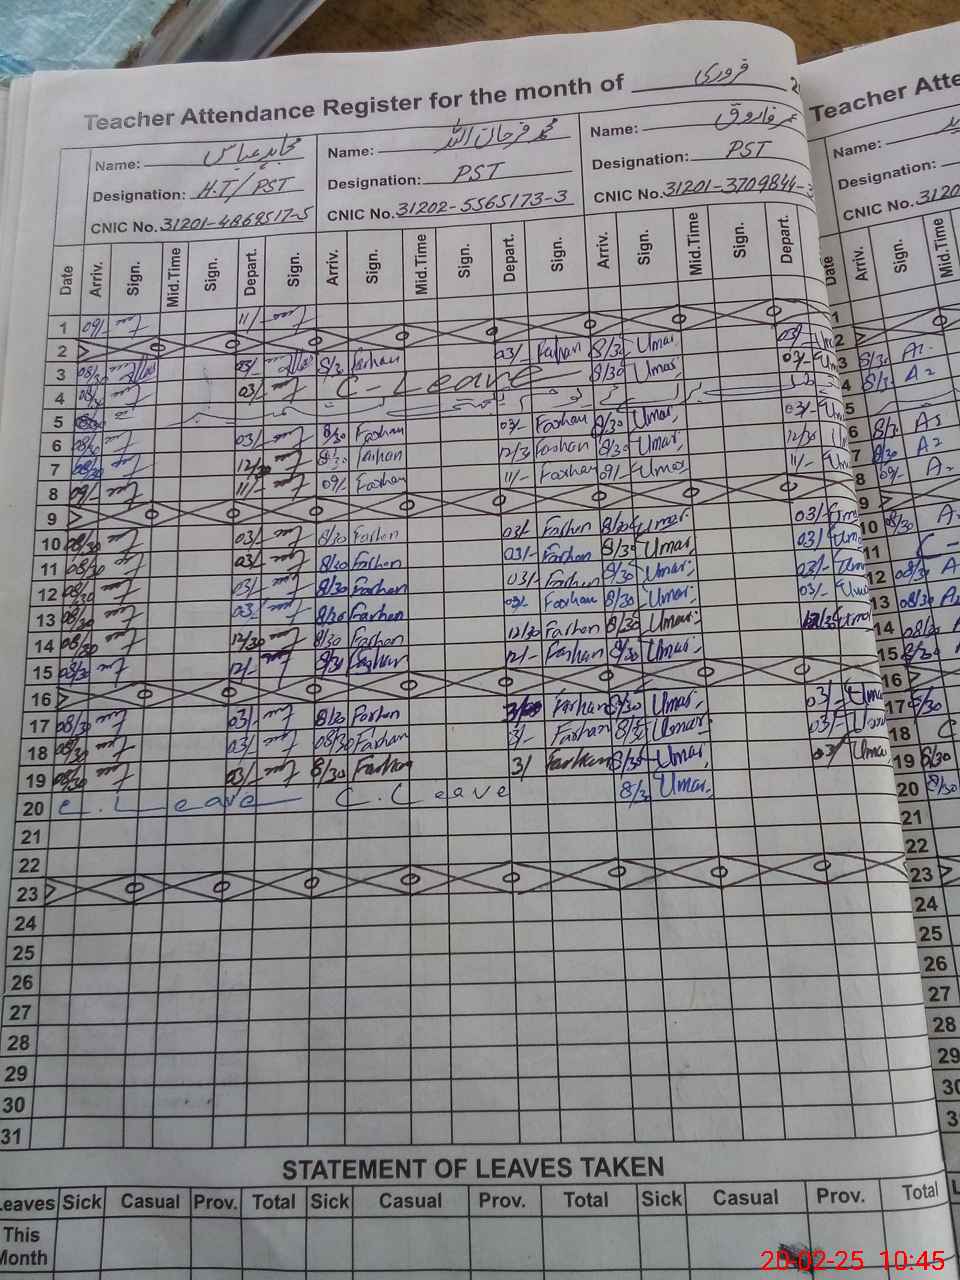 Teacher Attendance Register for the month of فروری 2
Teacher Atte
Name: مجاہد عباس
Designation: H.T/PST
CNIC No. 31201-4869517-5
Name: محمد فرحان اللہ
Designation: PST
CNIC No. 31202-5565173-3
Name: عمر فاروق
Designation: PST
CNIC No. 31201-3709844-3
Name:
Designation:
CNIC No. 3120
Date Arriv. Sign. Mid.Time Sign. Depart. Sign. Arriv. Sign. Mid.Time Sign. Depart. Sign. Arriv. Sign. Mid.Time Sign. Depart. Date Arriv. Sign. Mid.T
1 09/- 11/-
2
3 08/30 03/- 8/30 Farhan 03/- Farhan 8/30 Umar. 03/- Uma 3 8/30
4 08/30 03/- C-Leave 8/30 Umar. 03/- Um 4 8/30
5 5
6 08/30 03/- 8/30 Farhan 03/- Farhan 8/30 Umar. 03/- Um 6 8/30
7 08/30 12/30 8/30 Farhan 12/30 Farhan 8/30 Umar. 12/30 U 7 8/30
8 09/- 11/- 09/- Farhan 11/- Farhan 09/- Umar 11/- Um 8 09/-
9 9
10 08/30 03/- 8/30 Farhan 03/- Farhan 8/30 Umar. 03/- Uma 10 08/30
11 08/30 03/- 8/30 Farhan 03/- Farhan 8/30 Umar. 03/- Um 11 C-
12 08/30 03/- 8/30 Farhan 03/- Farhan 8/30 Umar. 03/- Um 12 08/30
13 08/30 03/- 8/30 Farhan 03/- Farhan 8/30 Umar. 03/- Uma 13 08/30
14 08/30 12/30 8/30 Farhan 12/30 Farhan 8/30 Umar. 12/30 Uma 14 08/30
15 08/30 12/- 8/30 Farhan 12/- Farhan 8/30 Umar. 15 8/30
16 16
17 08/30 03/- 8/30 Farhan Farhan 8/30 Umar. 03/- Uma 17 8/30
18 08/30 03/- 08/30 Farhan 3/- Farhan 8/30 Umar. 03/- Uma 18 C
19 08/30 03/- 8/30 Farhan 3/ Farhan 8/30 Umar. 03/ Umar 19 8/30
20 C. Leave C. Leave 8/30 Umar. 20 8/30
21 21
22 22
23 23
24 24
25 25
26 26
27 27
28 28
29 29
30 30
31 3
STATEMENT OF LEAVES TAKEN
Leaves Sick Casual Prov. Total Sick Casual Prov. Total Sick Casual Prov. Total L
This Month
20-02-25 10:45